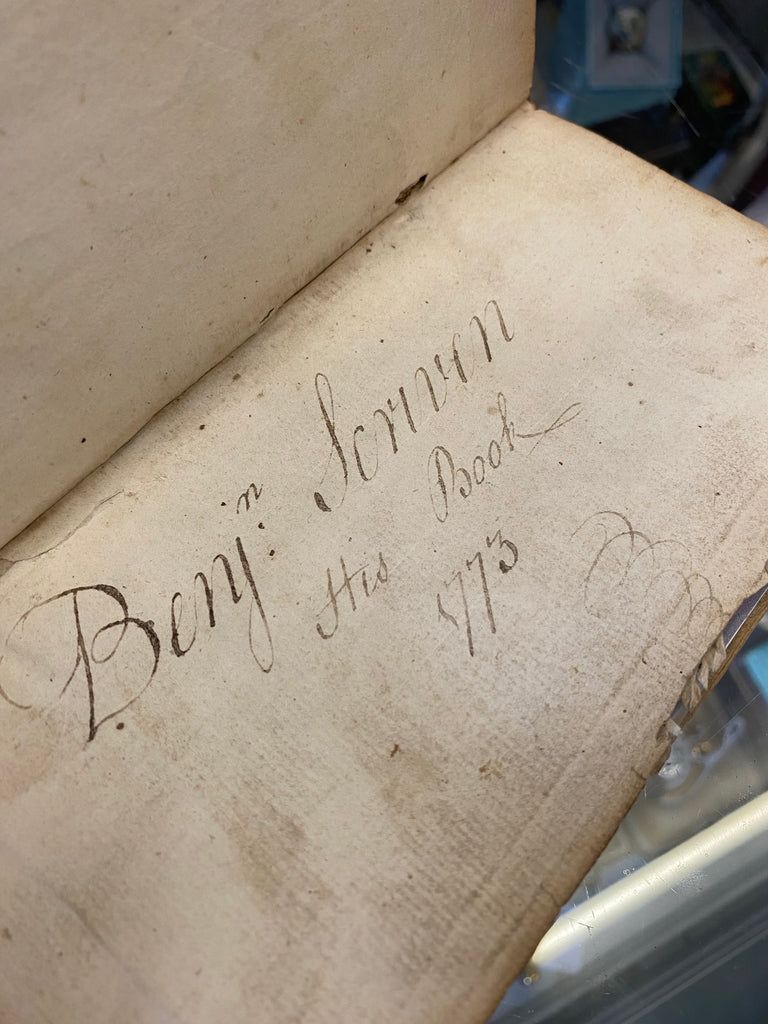 Benjⁿ. Scriven
His Book
1773